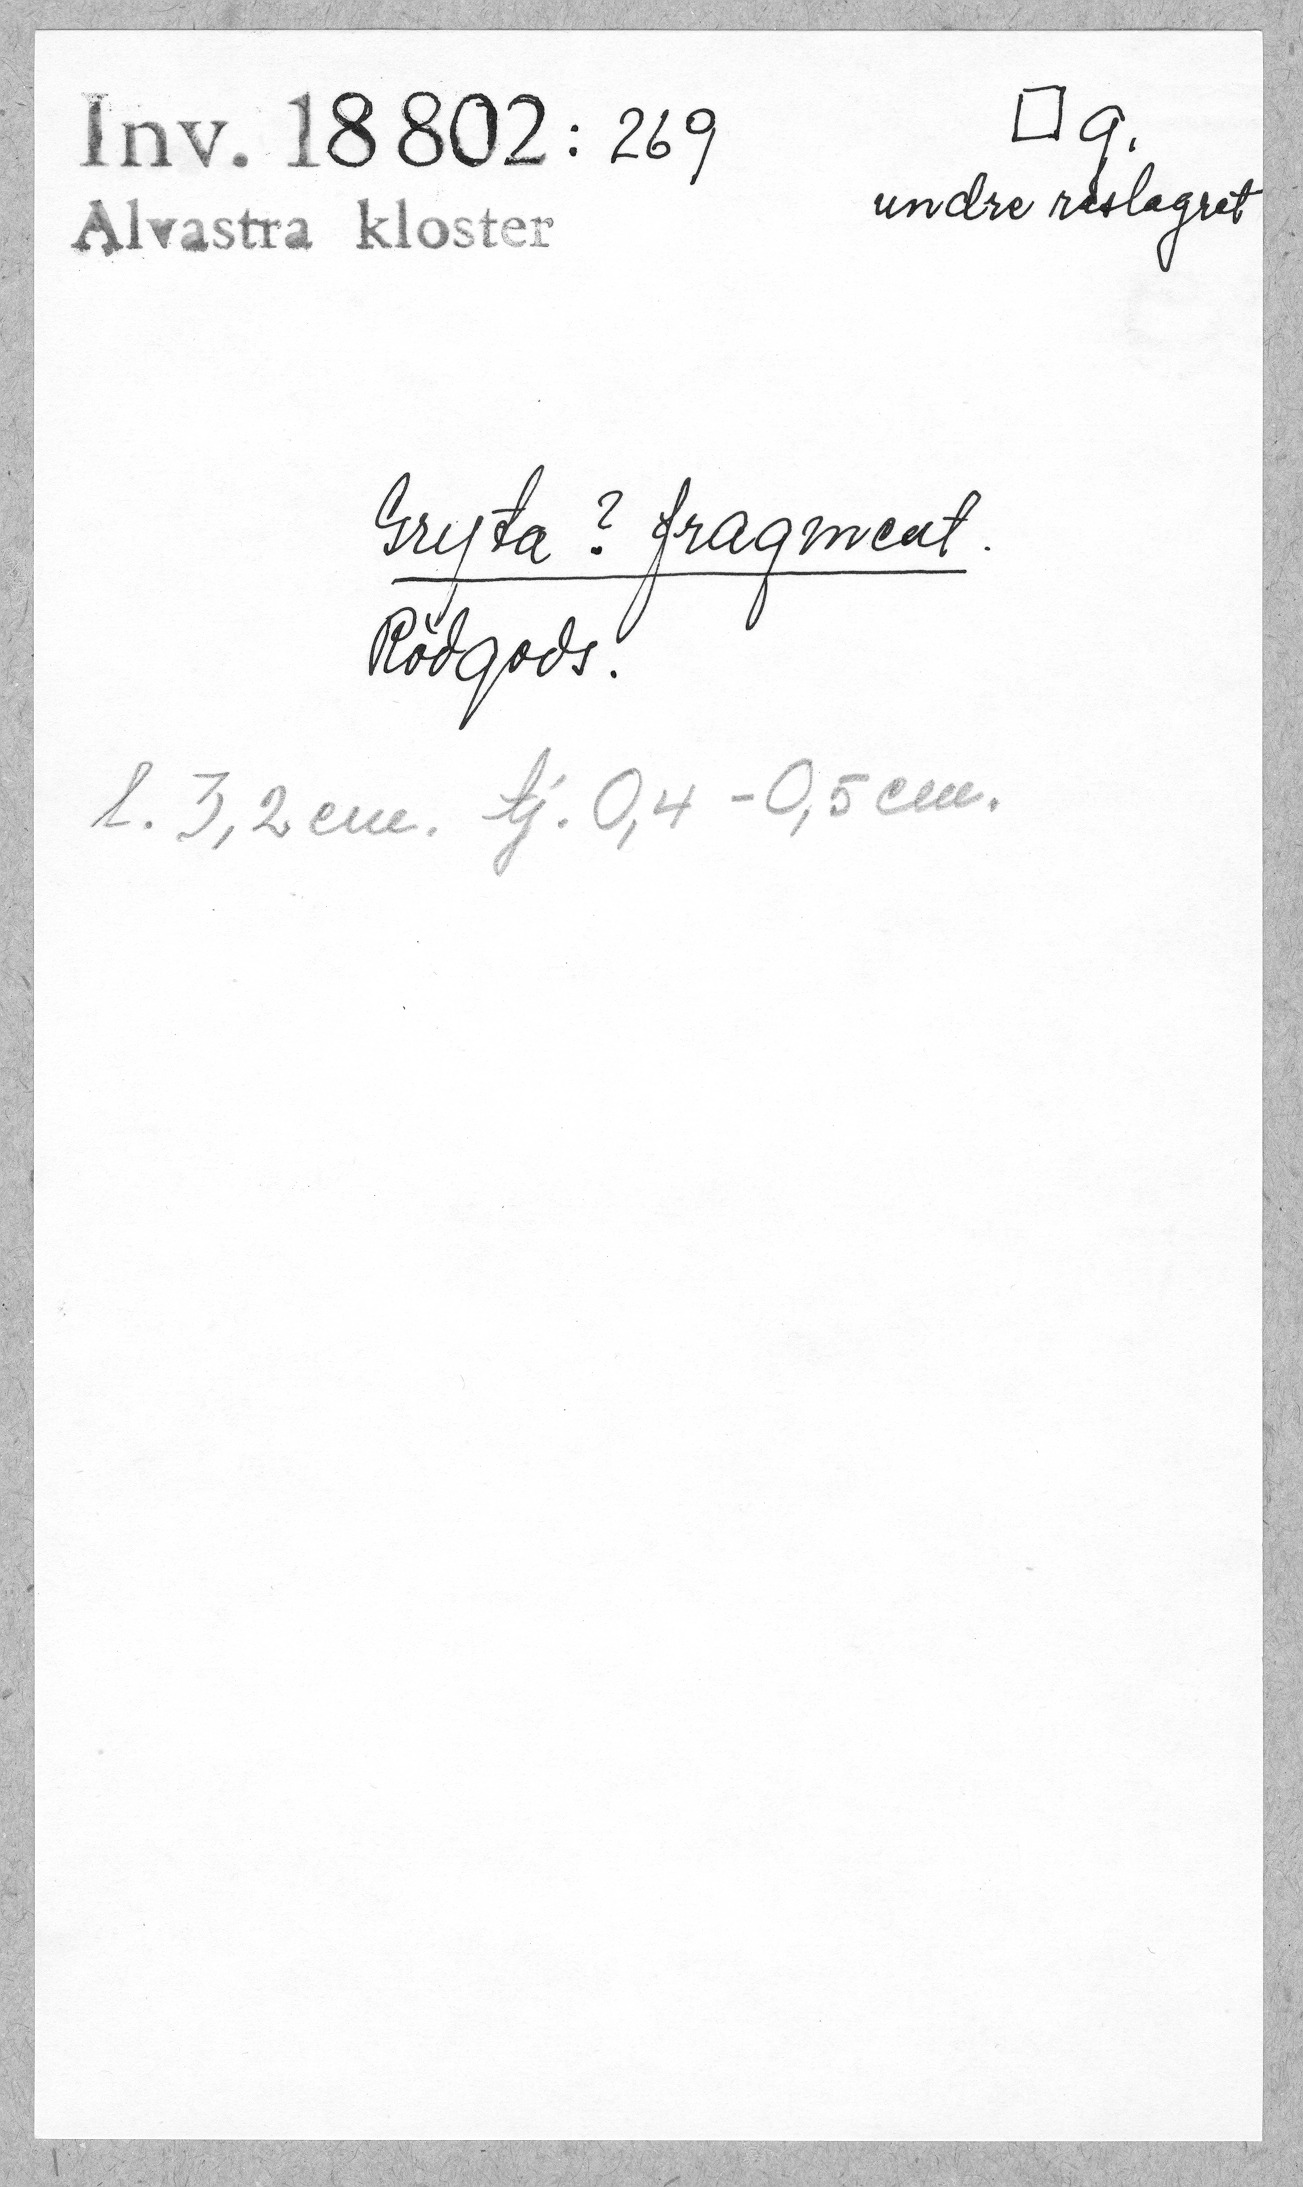 Inv. 18 802 : 269
□ g.
Alvastra kloster
undre reslagret
Gryta ? fragment.
Rödgods.
l. 3,2 cm. tj. 0,4 - 0,5 cm.